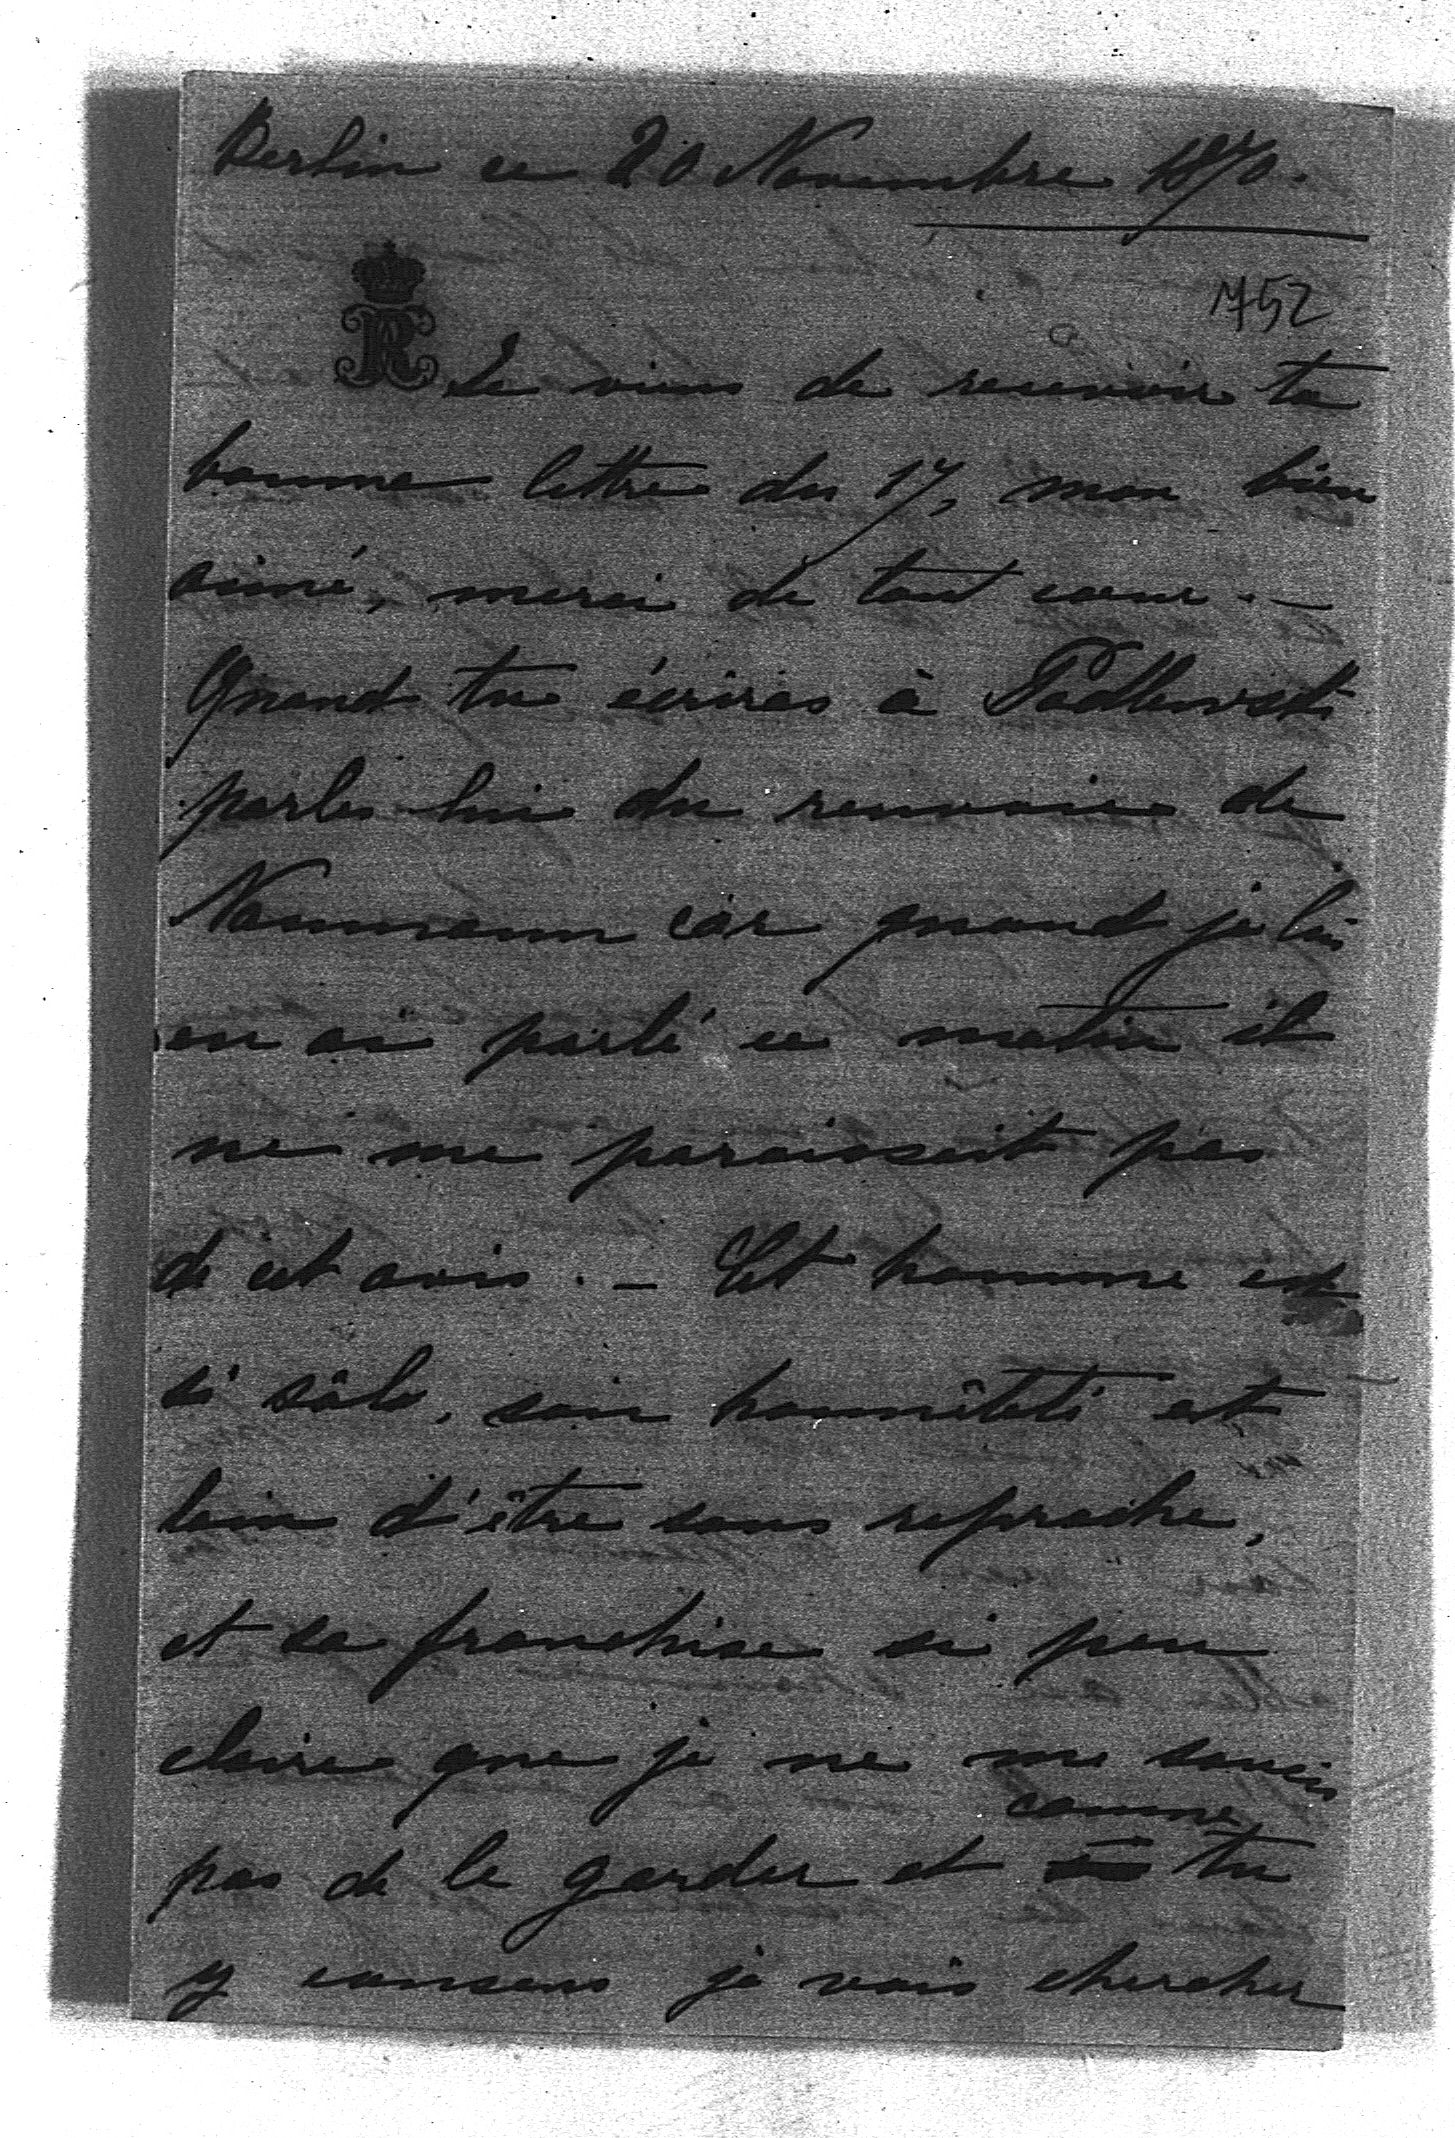 Berlin ce 20 Novembre 1870.
752
R Je viens de recevoir ta
bonne lettre du 17, mon bien
aimé, merci de tout coeur. —
Quand tu écriras à Podlewski
parles lui du renvoie de
Naumann car quand je lui
en ai parlé ce matin il
ne me paraissait pas
de cet avis. — Cet homme est
si sâle, son honnêteté est
loin d'être sans reproche,
et sa franchise si peu
claire que je ne me soucis
pas de le garder et comme tu
y consens je vais chercher